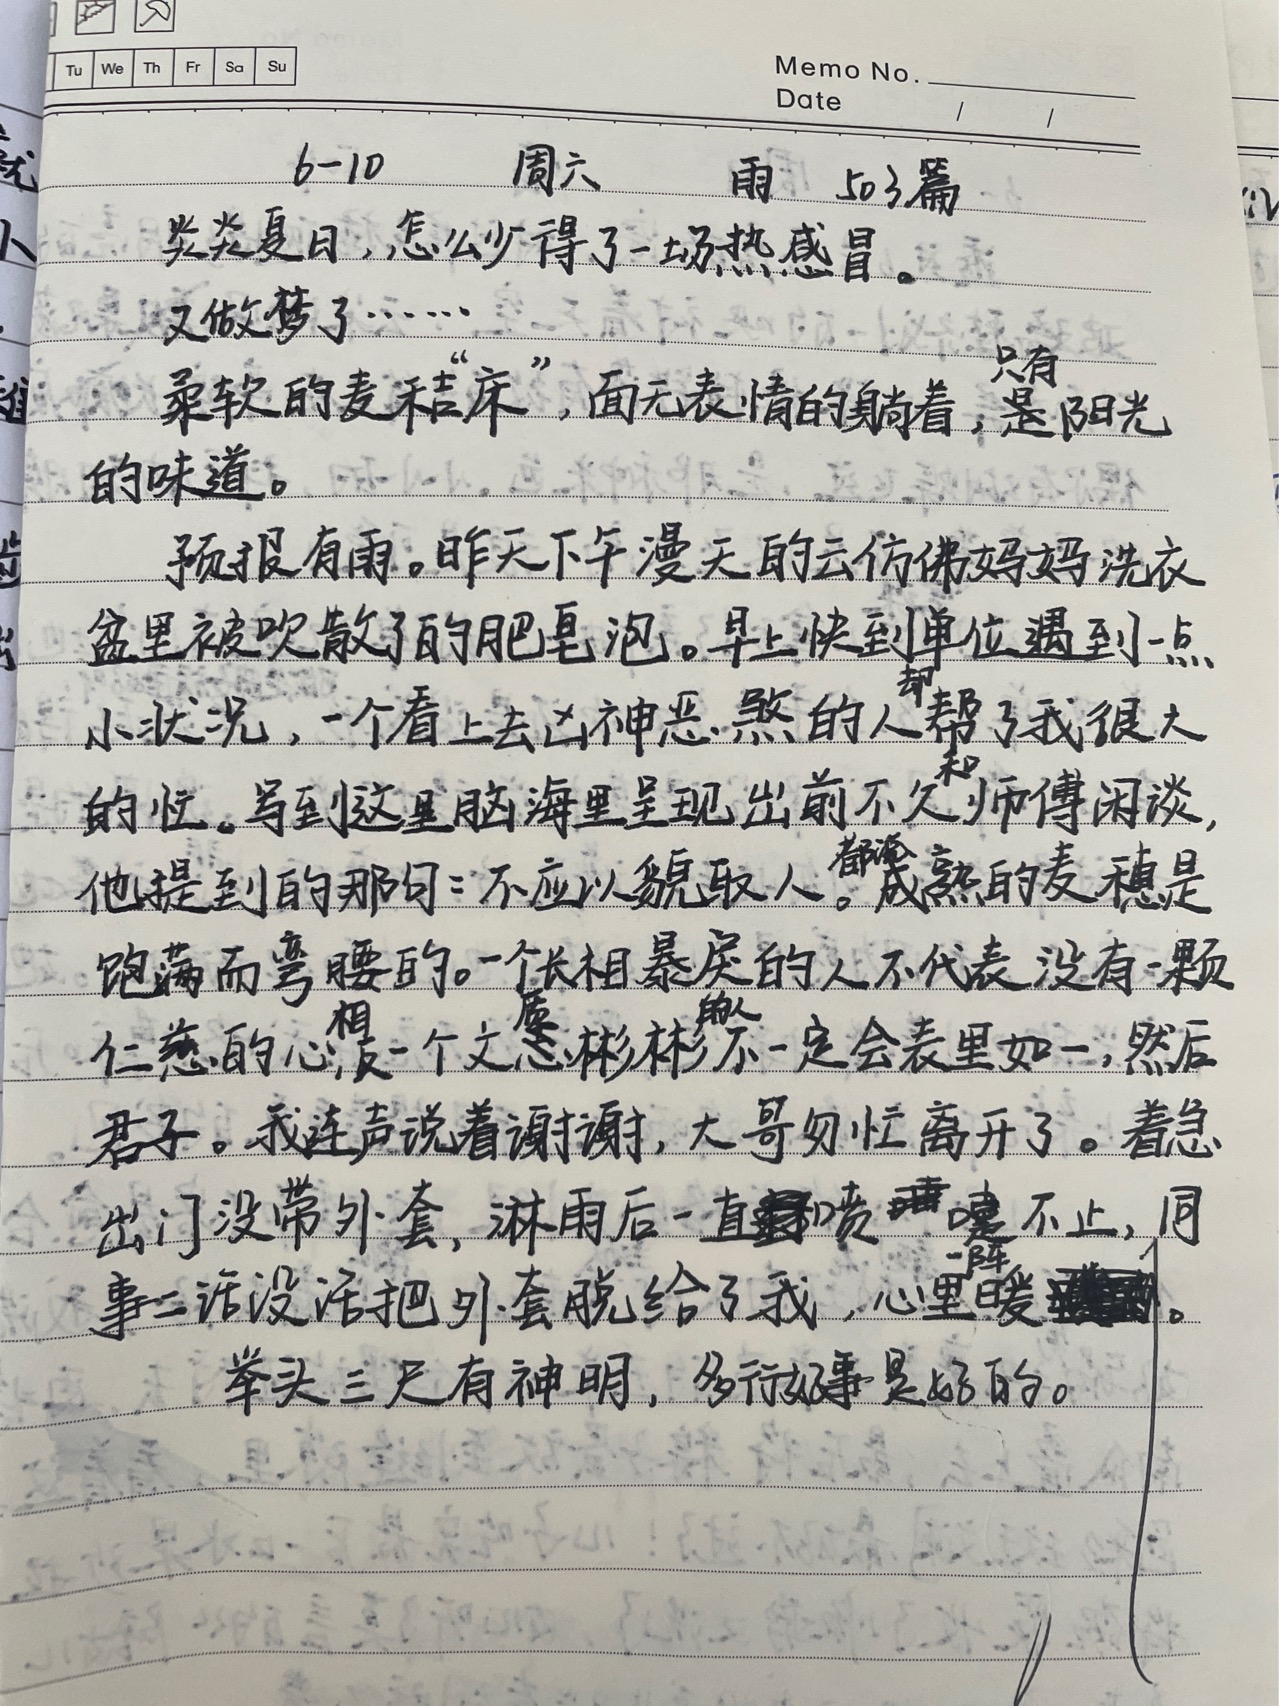 Tu We Th Fr Sa Su
Memo No.
Date / /
6-10 周六 雨 503篇
炎炎夏日，怎么少得了一场热感冒。
又做梦了……
柔软的麦秸“床”，面无表情的躺着，只有是阳光
的味道。
预报有雨。昨天下午漫天的云仿佛妈妈洗衣
盆里被吹散了的肥皂泡。早上快到单位遇到一点
小状况，一个看上去凶神恶煞的人却帮了我很大
的忙。写到这里脑海里呈现出前不久和师傅闲谈，
他提到的那句：不应以貌取人。成熟的麦穗是
饱满而弯腰的。一个长相暴戾的人不代表没有一颗
仁慈的心，相反一个文质彬彬的人不一定会表里如一，然后
君子。我连声说着谢谢，大哥匆忙离开了。着急
出门没带外套，淋雨后一直喷嚏不止，同
事二话没说把外套脱给了我，心里一阵暖。
举头三尺有神明，多行好事是好的。